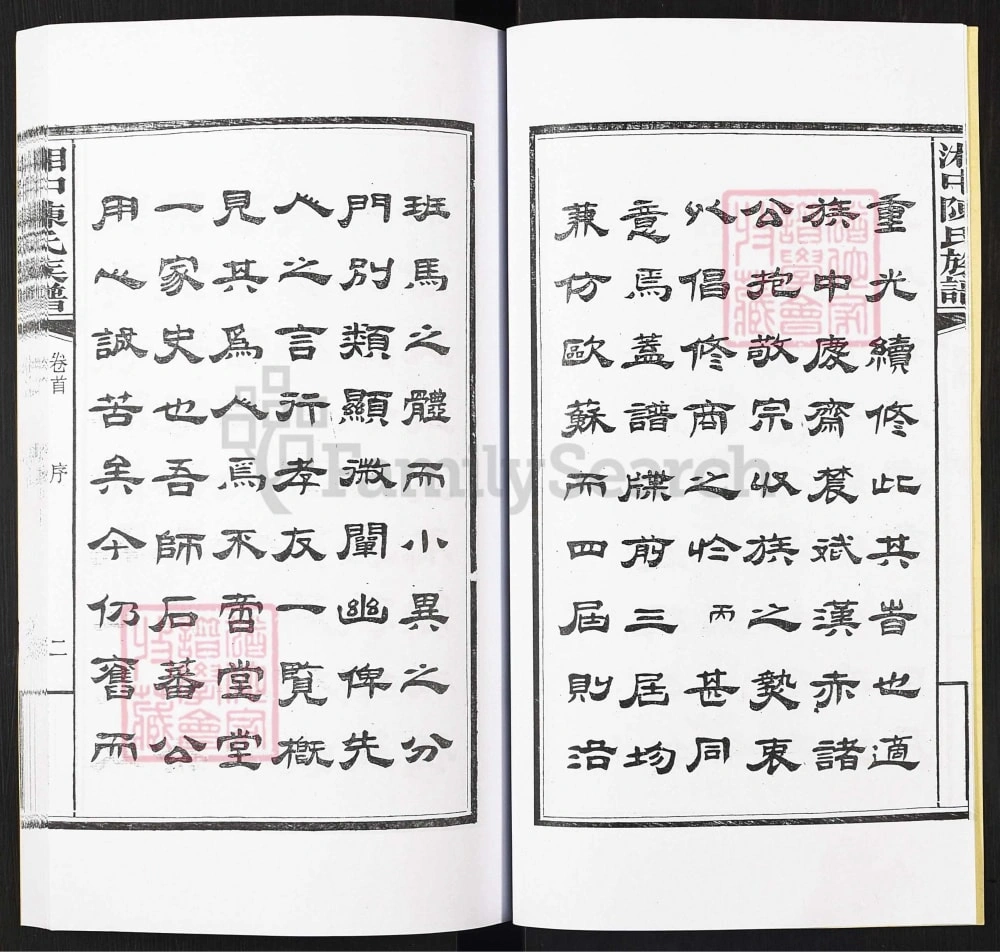 湘中陳氏族譜
重光續修此其旹也適
族中慶齋農斌漢赤諸
公抱敬宗收族之熱衷
以倡修商之於丙甚同
意焉蓋譜牒前三屆均
兼仿歐蘇而四屆則沿
猶他家譜學會特藏
班馬之體而小異之分
門別類顯微闡幽俾先
人之言行孝友一覽概
見其爲人焉不啻堂堂
一家史也吾師石蕃公
用心誠苦矣今仍舊而
猶他家譜學會特藏
湘中陳氏族譜
卷首
序
二
FamilySearch